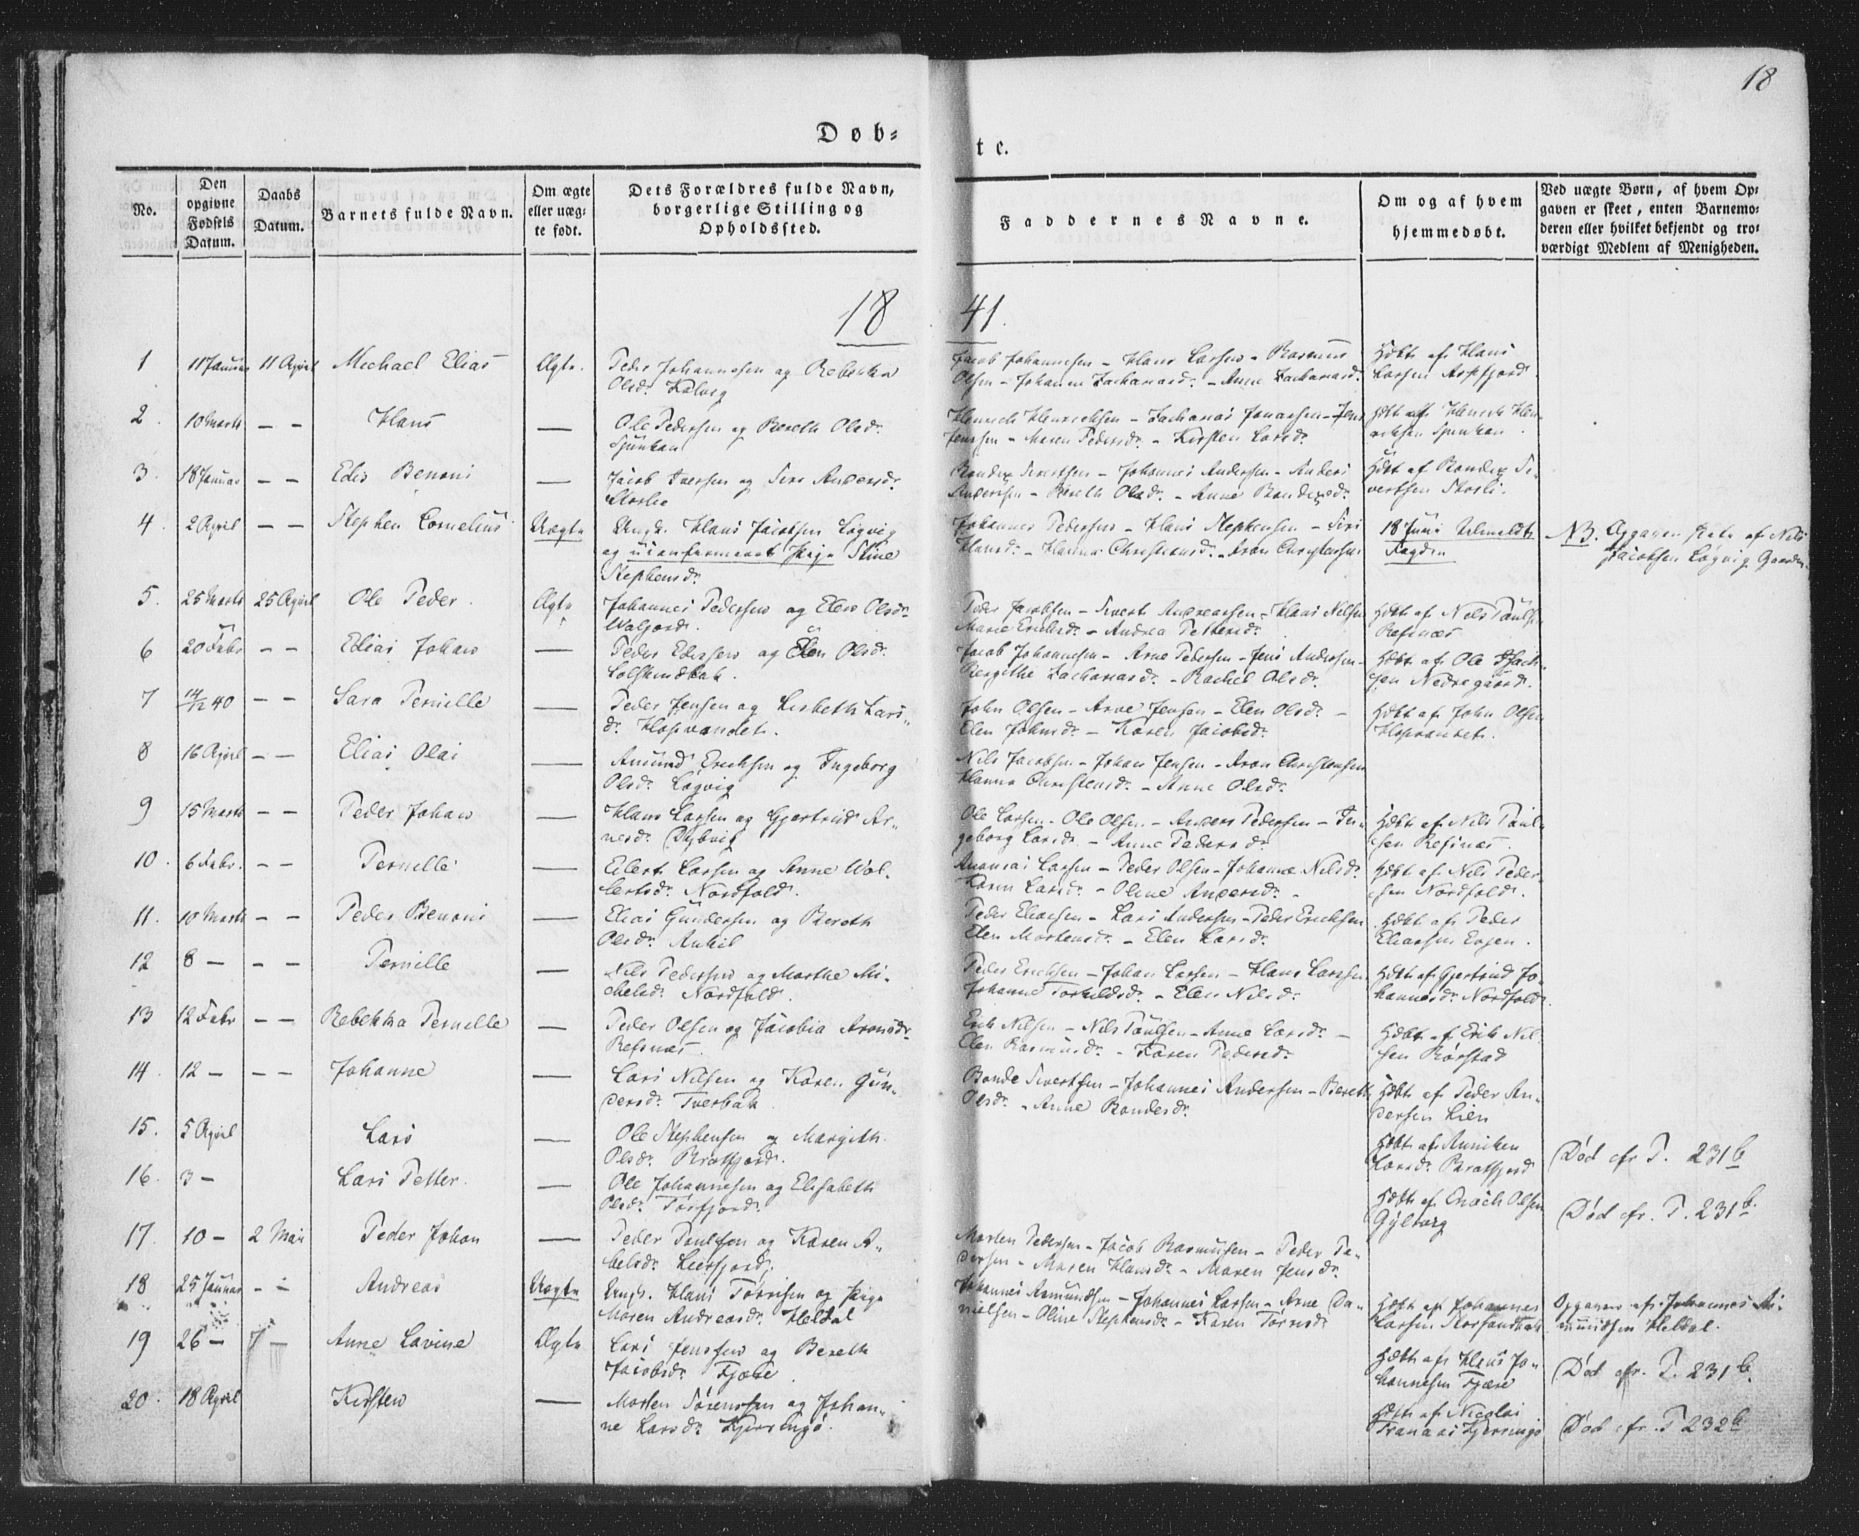 18
Døb-
te.
No.
Den opgivne Fødsels Datum.
Daabs Datum.
Barnets fulde Navn.
Om ægte eller uægte født.
Dets Forældres fulde Navn, borgerlige Stilling og Opholdssted.
Faddernes Navne.
Om og af hvem hjemmedøbt.
Ved uægte Børn, af hvem Opgaven er skeet, enten Barnemoderen eller hvilket bekjendt og troværdigt Medlem af Menigheden.
18 41.
1 11 Januar 11 April Michael Elias Ægte. Peder Johannesen og Rebekka
Olsdr. Jacob Johannesen - Hans Larsen - Rasmus
Olsen - Johanna Zachariasd. - Anne Zachariasd. Hdbt af Hans
Larsen
2. 10 Marts - - Hans — Ole Pedersen og Bereth Olsdr.
Henrich Henrichsen - Zacharias Jonassen - Jens
Jenssen - Maren Pedersd. - Kirsten Larsd. Hdbt af Henrich Hen-
richsen
3. 18 Januar - - Edis Benoni — Jacob Iversen og Siri Andersdr.
Storlie Sivertsen - Johannes Andersen - Anders
Andersen - Bereth Olsdr. - Anne Hdbt af Si-
vertsen Storli.
4. 2 April - - Stephen Cornelius Uægte Ungk. Hans Jacobsen Løgvig
og uconfirmeret Pige Stine
Stephensdr. Johannes Pedersen - Hans Stephensen - Siri
Hansd. - Hanna Christensd. - Aron Christensen 18 Juni
NB. Opgaven skete af Nils
Jacobsen Løgvig
5. 25 Marts 25 April Ole Peder. Ægte Johannes Pedersen og Elen Olsdr.
Peder Jacobsen - Sivert Andreassen - Hans Nilsen
Marie Ericksd. - Andrea Pettersd. Hdbt af Nils Paulsen
Refsnæs
6 20 Febr - - Elias Johan — Peder Edissen og Elen Olsd.
Jacob Johannesen - Arne Pedersen - Jens Andersen -
Bergithe Zachariasd. - Rachel Olsd. Hdbt af Ole
sen Nedregaard.
7 14/12 40 - - Sara Pernille — Peder Jensen og Lisbeth Lars-
d. Hopvandet. John Olsen - Arne Jensen - Elen Olsd. -
Elen Johnsd. - Karen Jacobsd. Hdbt af John Olsen
Hopvandet.
8 16 April - - Elias Olai — Amund Ericksen og Ingeborg
Olsd. Løgvig Nils Jacobsen - Johan Jensen - Aron Christensen
Hanna Christensd. - Anne Olsd.
9 15 Marts - - Peder Johan — Hans Larsen og Gjertrud Ar-
nesd. Dybvig Ole Larsen - Ole Olsen - Anders Pedersen - In-
geborg Larsd. - Anne Pedersd. Hdbt af Nils Paul-
sen Refsnæs
10. 6 Febr. - - Pernille — Eilert Larsen og Anne Wol-
bertsd. Nordfold. Ananias Larsen - Peder Olsen - Johanna Nilsd.
Karen Larsd. - Oline Andersd. - Hdbt af Nils Peder-
sen Nordfold.
11. 10 Marts - - Peder Benoni — Elias Gundersen og Bereth
Olsd. Peder Eliassen - Lars Andersen - Peder Ericksen
Elen Mortensd. - Elen Larsd. Hdbt af Peder
Eliassen Evjen.
12 8 — - - Pernille — Nils Pedersen og Marthe Mi-
chelsd. Nordfold. Peder Ericksen - Johan Larsen - Hans Larssen
Johanne Torkildsd. - Elen Nilsd. Hdbt af Gjertrud Jo-
hannesd. Nordfold
13 12 Febr - - Rebekka Pernille — Peder Olsen og Jacobia Aronsdr.
Refsnæs. Erik Nilsen - Nils Paulsen - Anne Larsd. -
Elen Rasmusd. - Karen Pedersd. Hdbt af Erik Nil-
sen Rørstad
14. 12 — - - Johanne — Lars Nilsen og Karen Gun-
dersd. Tverbak Bonde Sivertsen - Johannes Andersen - Bereth
Olsd. - Anne Bondesd. Hdbt af Peder An-
dersen Lien
15. 5 April Lars — Ole Stephensen og Margith
Olsd. Bratfjord. Hdbt af Anniken
Larsd. Bratfjord Død cfr. P. 231 b
16. 3 — Lars Petter. — Ole Johannesen og Elisabeth
Olsd. Torfjord. Hdbt af Enoch Olsen
Gylborg Død cfr. P. 231 b.
17. 10 — 2 Mai Peder Johan — Peder Paulsen og Karen A-
belsd. Leirfjord. Morten Pedersen - Jacob Rasmusen - Peder Pe-
dersen - Maren Hansd. - Maren Jensd.
18 25 Januar - - Andreas Uægte Ungk. Hans Torrisen og Pige
Maren Andreasd. Heldal Johannes Asmundsen - Johannes Larsen - Arne Da-
nielsen - Oline Stephensd. - Karen Torrisd. Hdbt af Johannes
Larsen Opgaven af Johannes As-
mundsen Heldal.
19 26 — 7 — Anne Lavine Ægte Lars Jenssen og Bereth
Jacobsd. Fjære. Hdbt af Hans Jo-
hannesen Fjære Død cfr. P. 231 b.
20. 18 April Kirsten — Morten Sørenssen og Johan-
ne Larsd. Kjerringø. Hdbt af Nicolai
Kjerringø Død cfr. P 232 b